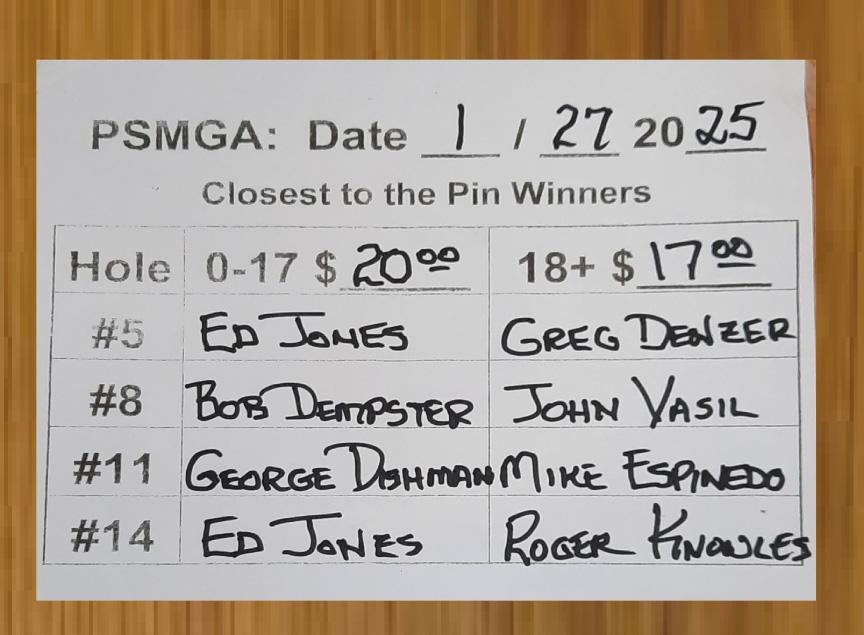 PSMGA: Date 1 / 27 2025
Closest to the Pin Winners
Hole 0-17 $ 20.00 18+ $ 17.00
#5 ED JONES GREG DENZER
#8 BOB DEMPSTER JOHN VASIL
#11 GEORGE DISHMAN MIKE ESPINEDO
#14 ED JONES ROGER KNOWLES